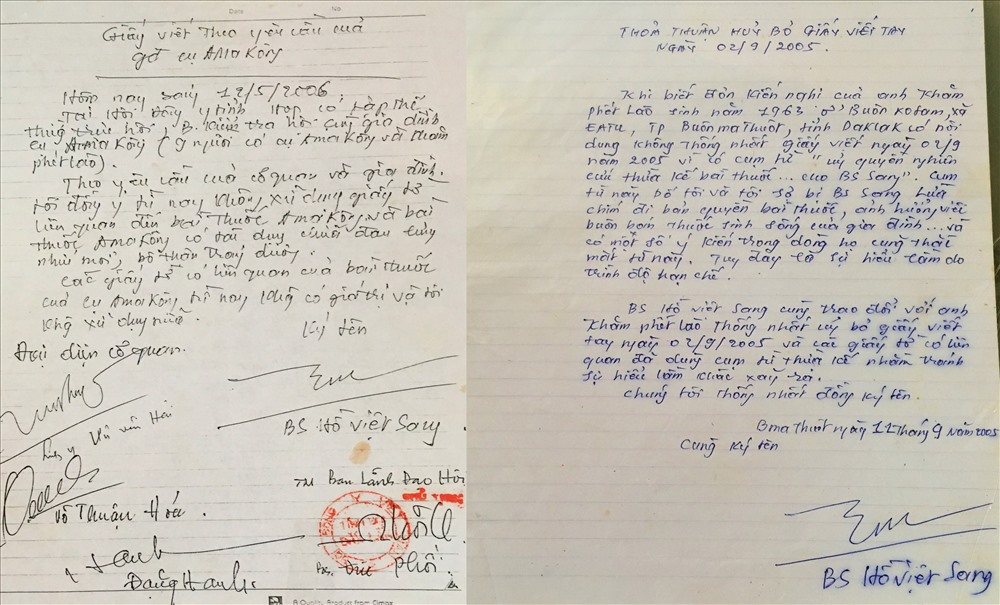 Date No.
Giấy viết theo yêu cầu của
gđ cụ AMA KôNg
Hôm nay sáng 12/5/2006.
Tại Hội Đông y tỉnh Họp có tập thể
thường trực hội, B. Kiểm tra hội cùng gia đình
cụ AMA Kông (9 người có cụ AmaKông và Khăm
phết Lào).
Theo yêu cầu của cơ quan và gia đình.
tôi đồng ý từ nay không xử dụng giấy tờ
liên quan đến bài thuốc AmaKông và bài
thuốc AmaKông có tác dụng chữa đau lưng
nhức mỏi, bổ thận tráng dương.
các giấy tờ có liên quan của bài thuốc
của cụ AmaKông từ nay không có giá trị và tôi
không xử dụng nữa.
Ký tên
Đại diện cơ quan.
Vũ Văn Hải
BS Hồ Việt Sang
Võ Thuận Hoá.
TM Ban Lãnh Đạo Hội
Đặng Hanh
Đức Phôi.
A Quality Product from Climax
THOẢ THUẬN HUỶ BỎ GIẤY VIẾT TAY
NGÀY 02/9/2005.
Khi biết đơn kiến nghị của anh Khăm
phết Lào sinh năm 1963 ở Buôn KoTam, xã
EATU, TP Buôn ma Thuột, tỉnh DAKLAK có nội
dung không thống nhất giấy viết ngày 02/9
năm 2005 vì có cụm từ "uỷ quyền nghiên
cứu thừa kế bài thuốc... cho BS Sang". Cụm
từ này bố tôi và tôi sợ bị BS Sang Lừa
chiếm đi bản quyền bài thuốc, ảnh hưởng việc
buôn bán thuốc sinh sống của gia đình... và
có một số ý kiến trong dòng họ cũng thắc
mắt từ này. Tuy đây là sự hiểu lầm do
trình độ hạn chế.
BS Hồ Việt Sang cùng trao đổi với anh
Khăm phết Lào thống nhất huỷ bỏ giấy viết
tay ngày 02/9/2005 và các giấy tờ có liên
quan đã dùng cụm từ thừa kế nhằm tránh
sự hiểu lầm khác xảy ra.
chúng tôi thống nhất đồng ký tên.
Bma Thuột ngày 11 tháng 9 năm 2005
Cùng ký tên
BS Hồ Việt Sang